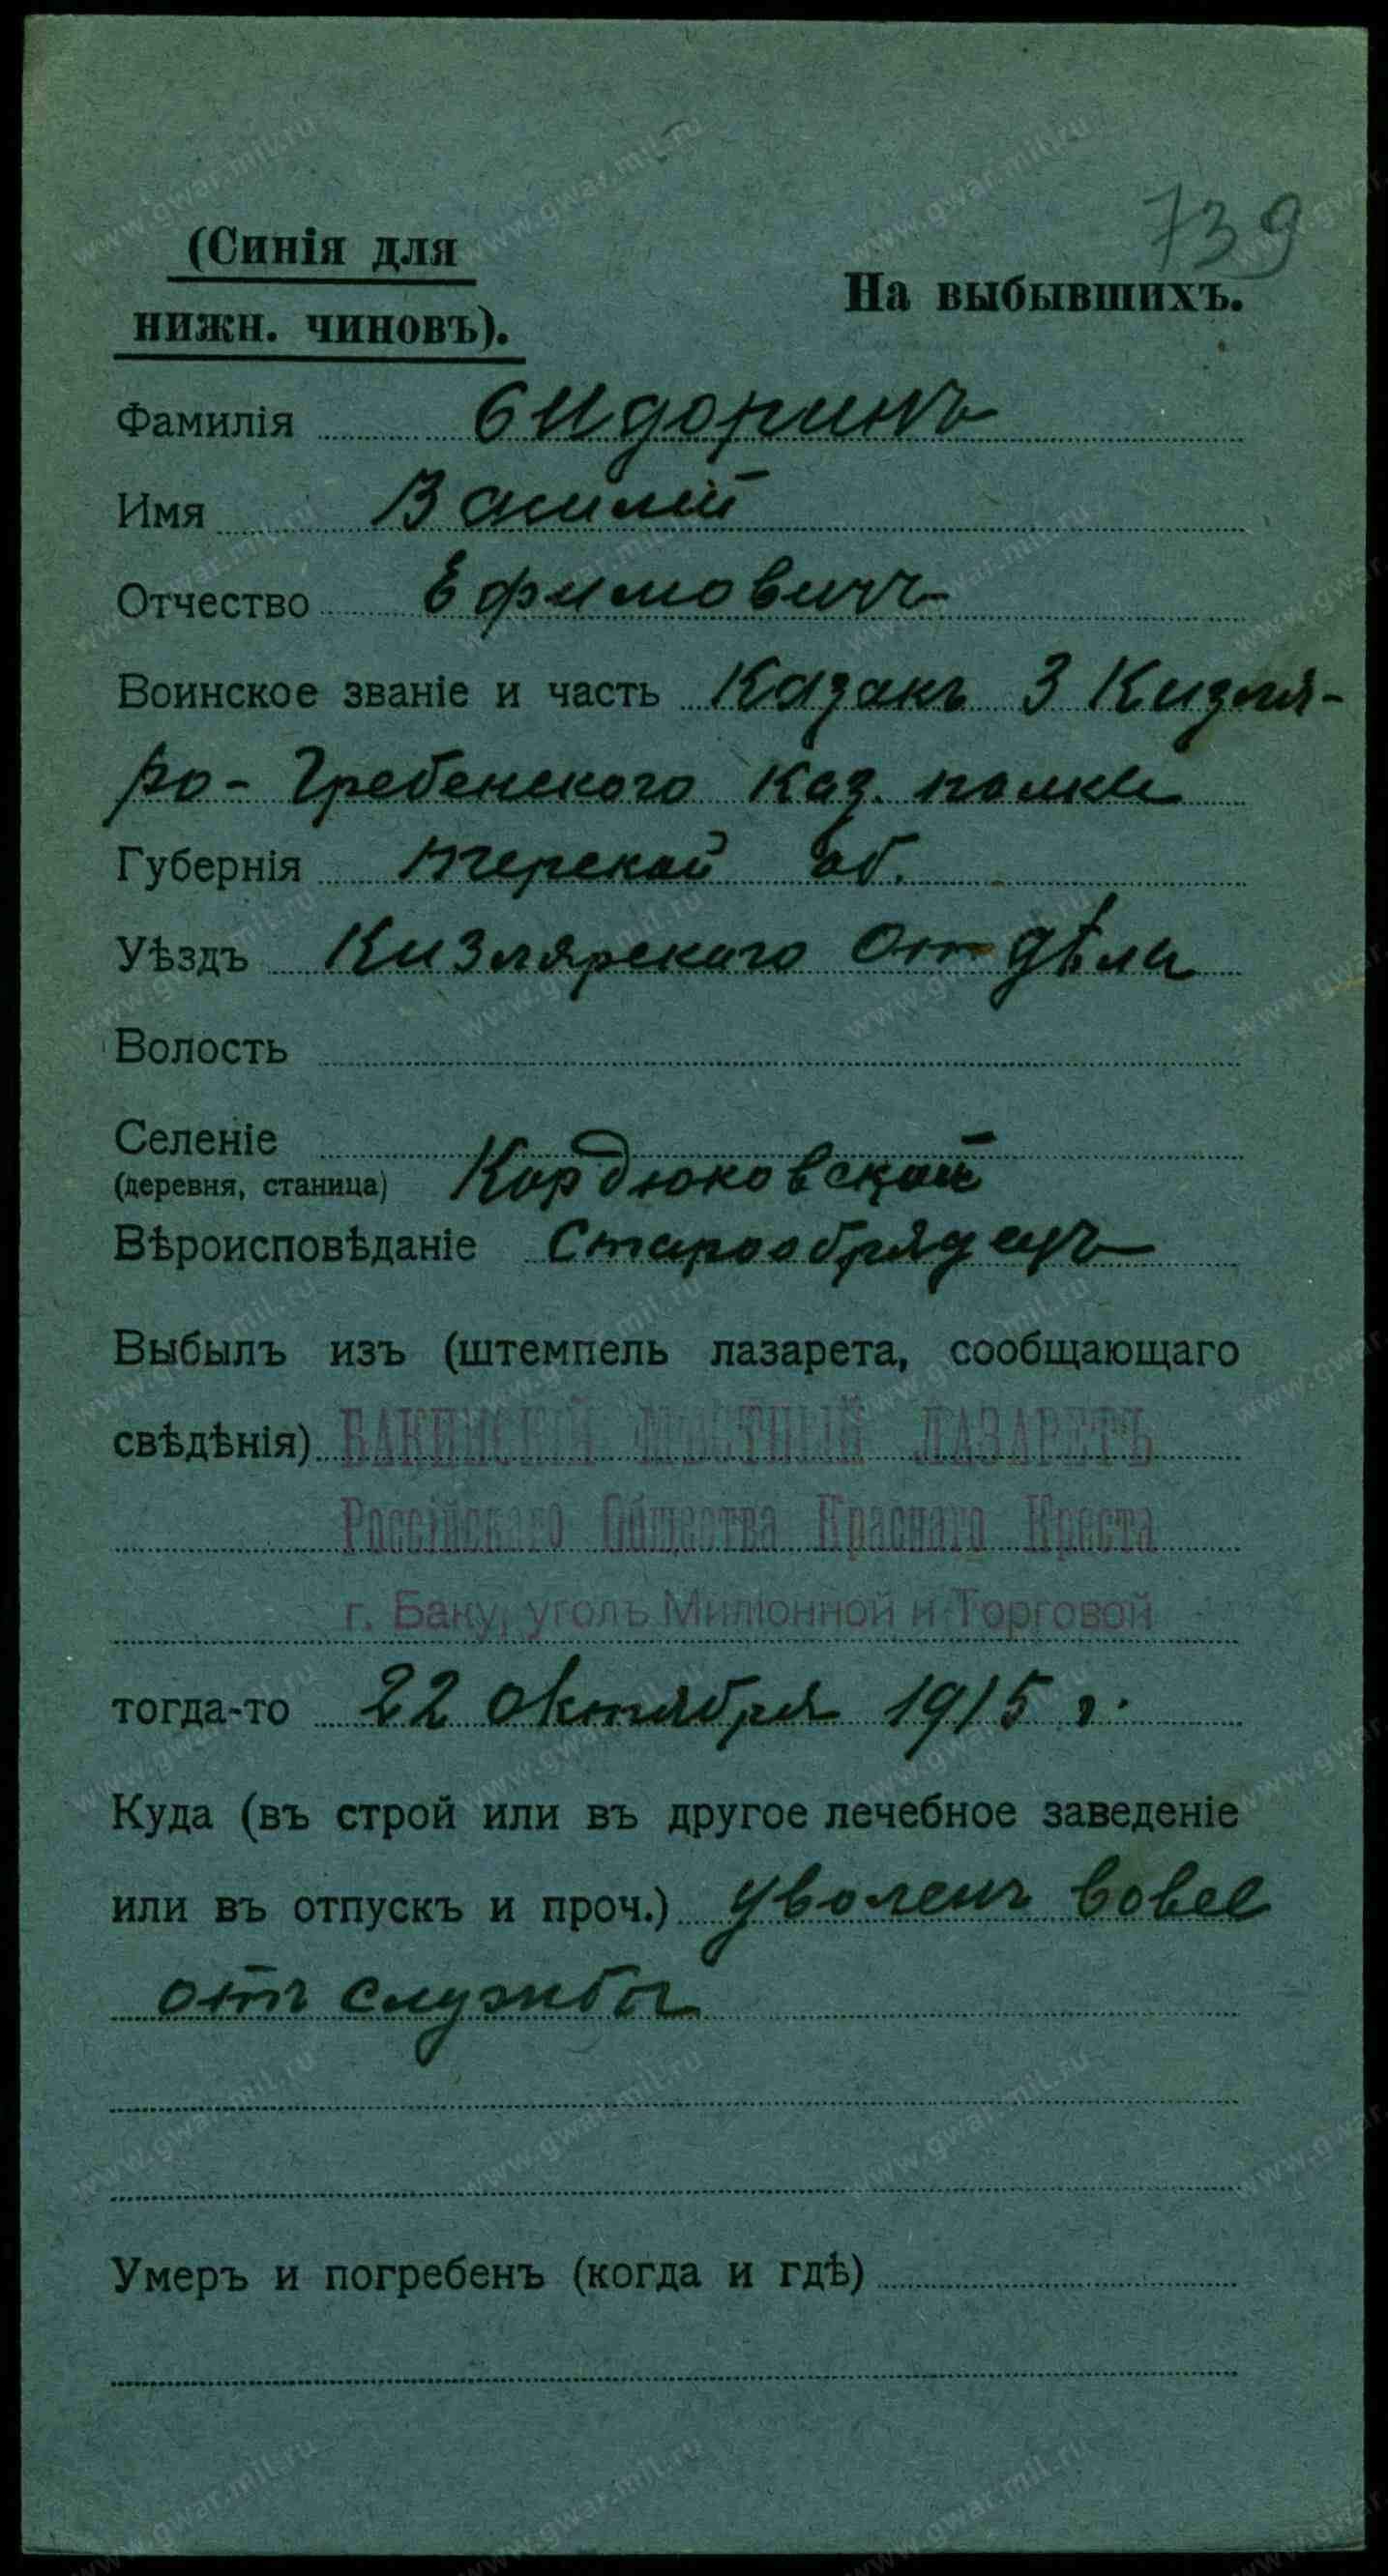 739
(Синія для
нижн. чиновъ).
На выбывшихъ.
Фамилія Сидоринъ
Имя Василій
Отчество Ефимовичъ
Воинское званіе и часть Казакъ 3 Кизля-
ро-Гребенского Каз. полка
Губернія Терской об.
Уѣздъ Кизлярскаго Отдѣла
Волость
Селеніе
(деревня, станица) Кордюковской
Вѣроисповѣданіе Старообрядецъ
Выбылъ изъ (штемпель лазарета, сообщающаго
свѣдѣнія) БАКИНСКІЙ МѢСТНЫЙ ЛАЗАРЕТЪ
Россійскаго Общества Краснаго Креста
г. Баку, уголъ Миліонной и Торговой
тогда-то 22 октября 1915 г.
Куда (въ строй или въ другое лечебное заведеніе
или въ отпускъ и проч.) уволенъ вовсе
отъ службы
Умеръ и погребенъ (когда и гдѣ)
www.gwar.mil.ru